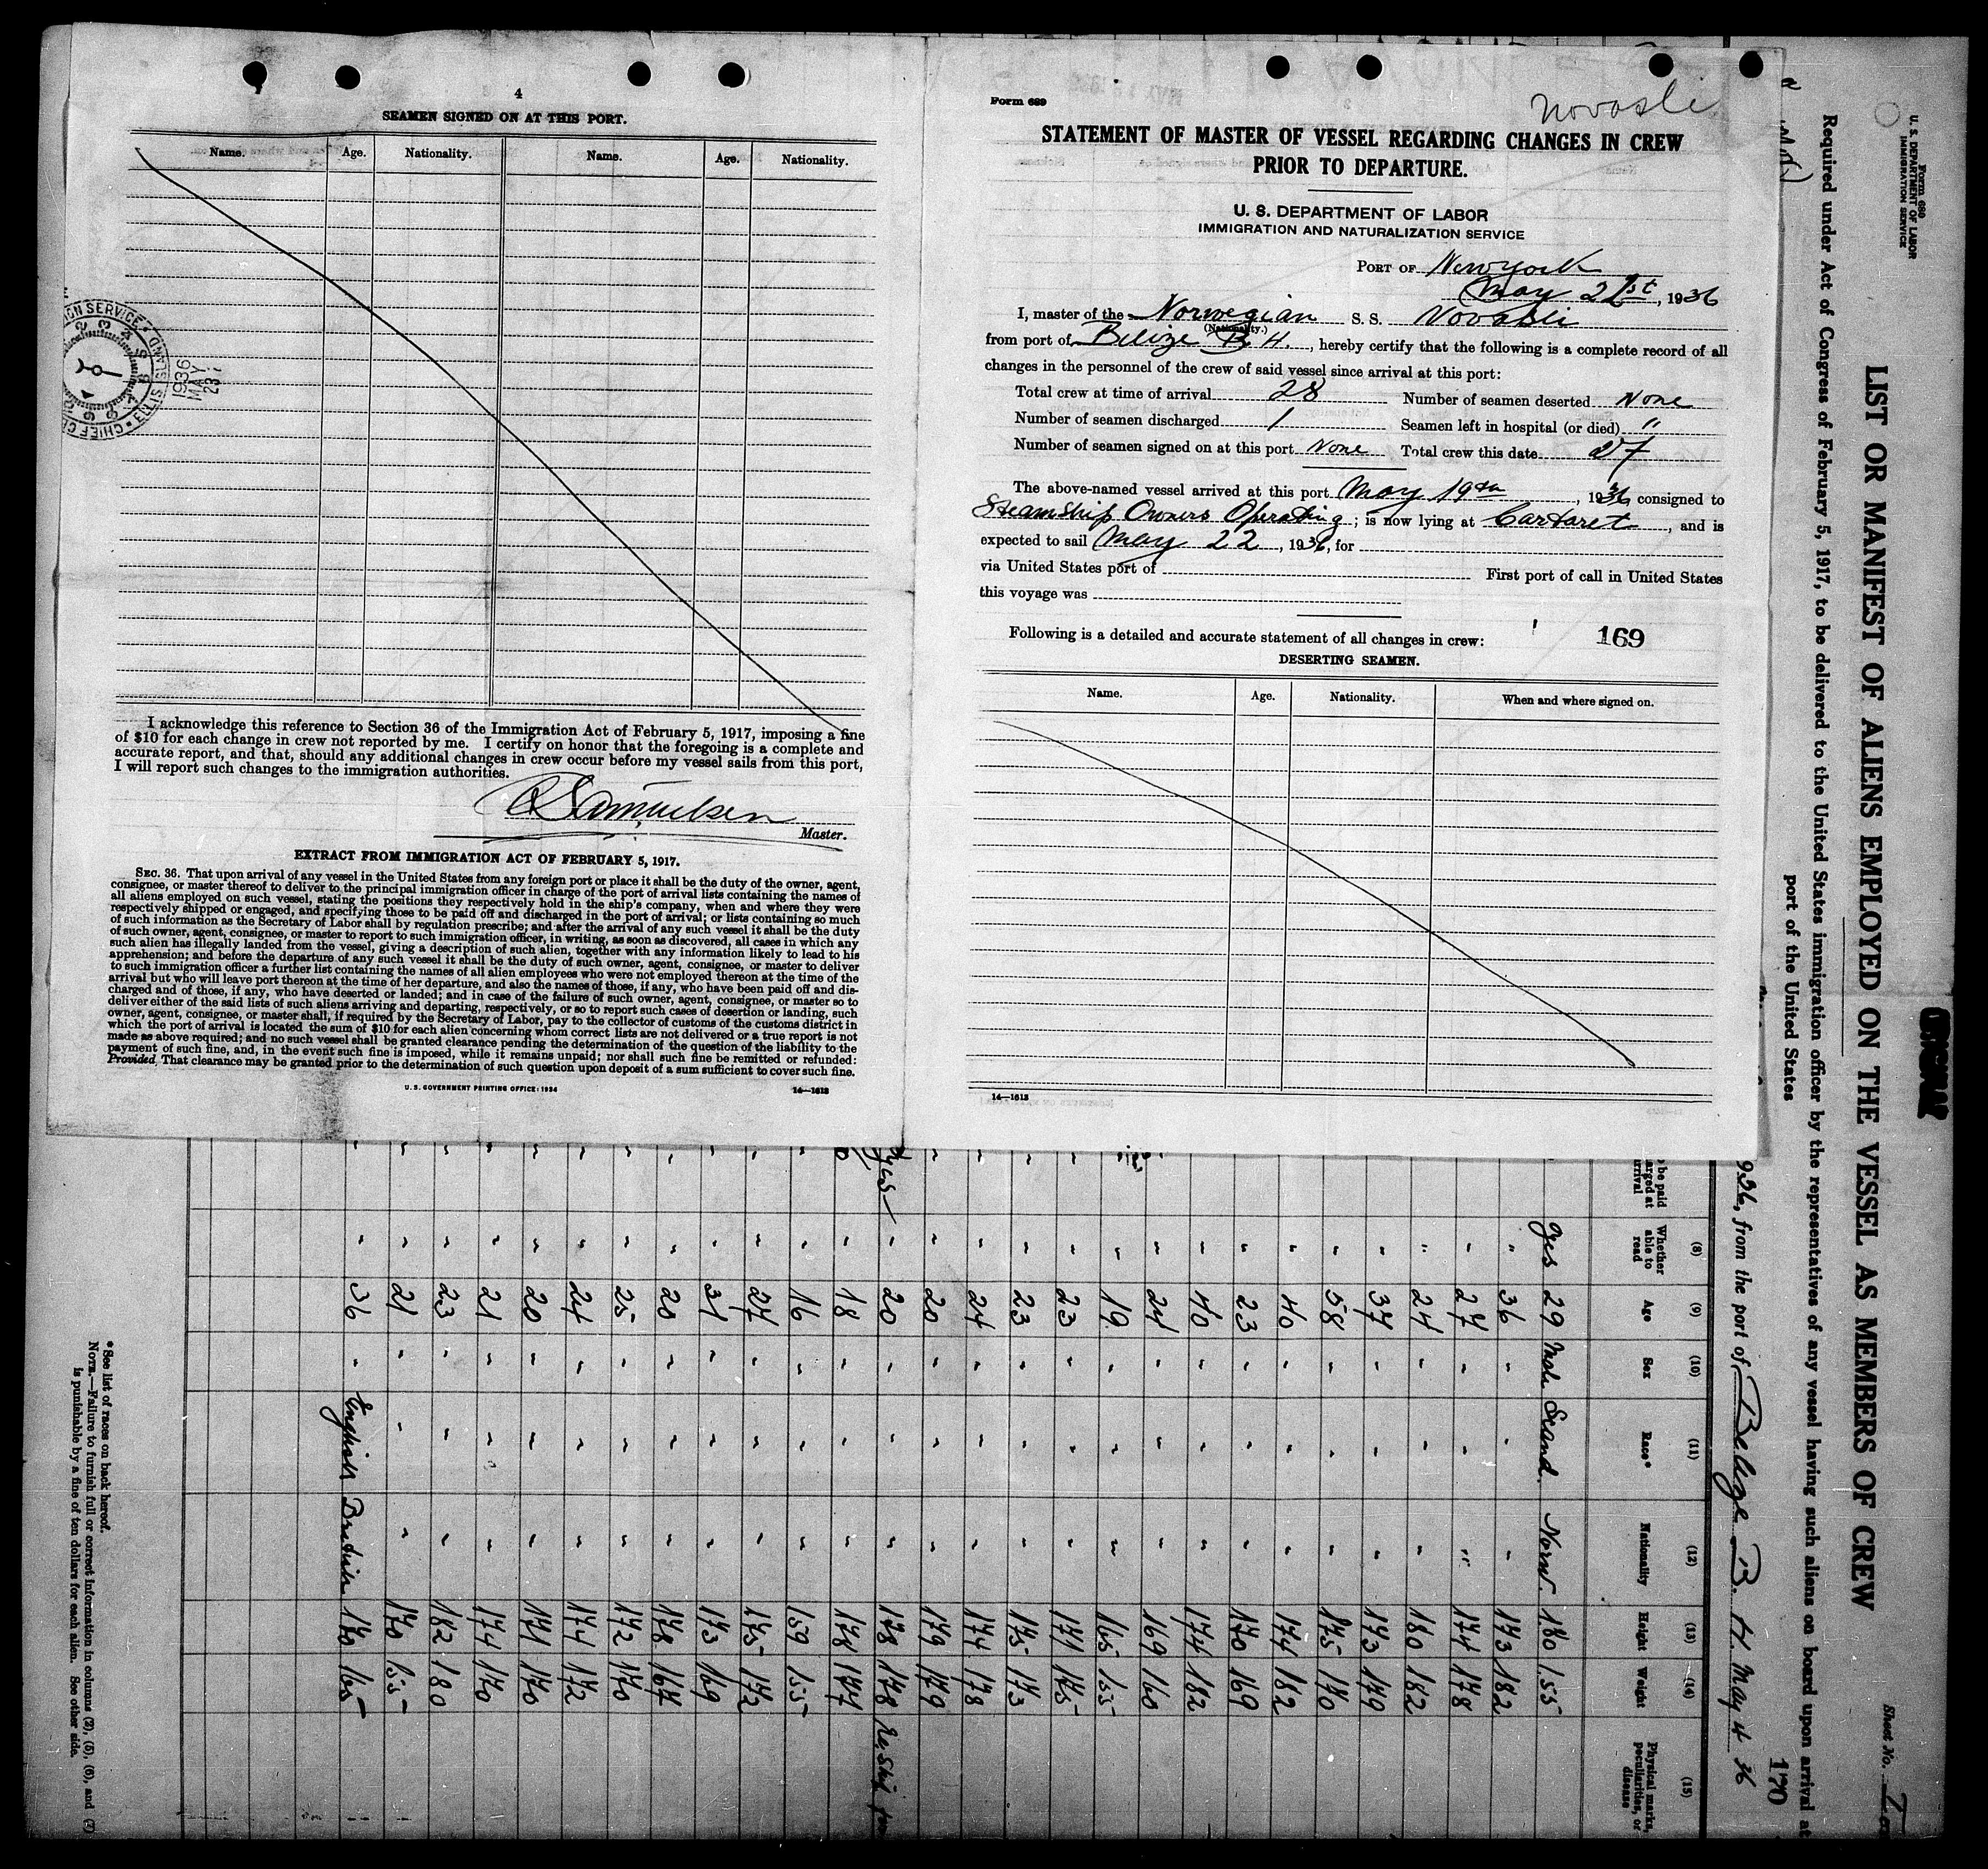 4
SEAMEN SIGNED ON AT THIS PORT.
Name. Age. Nationality. Name. Age. Nationality.
1936
MAY
23
I acknowledge this reference to Section 36 of the Immigration Act of February 5, 1917, imposing a fine
of $10 for each change in crew not reported by me. I certify on honor that the foregoing is a complete and
accurate report, and that, should any additional changes in crew occur before my vessel sails from this port,
I will report such changes to the immigration authorities.
Samuelsen
Master.
EXTRACT FROM IMMIGRATION ACT OF FEBRUARY 5, 1917.
SEC. 36. That upon arrival of any vessel in the United States from any foreign port or place it shall be the duty of the owner, agent,
consignee, or master thereof to deliver to the principal immigration officer in charge of the port of arrival lists containing the names of
all aliens employed on such vessel, stating the positions they respectively hold in the ship's company, when and where they were
respectively shipped or engaged, and specifying those to be paid off and discharged in the port of arrival; or lists containing so much
of such information as the Secretary of Labor shall by regulation prescribe; and after the arrival of any such vessel it shall be the duty
of such owner, agent, consignee, or master to report to such immigration officer, in writing, as soon as discovered, all cases in which any
such alien has illegally landed from the vessel, giving a description of such alien, together with any information likely to lead to his
apprehension; and before the departure of any such vessel it shall be the duty of such owner, agent, consignee, or master to deliver
to such immigration officer a further list containing the names of all alien employees who were not employed thereon at the time of the
arrival but who will leave port thereon at the time of her departure, and also the names of those, if any, who have been paid off and dis-
charged and of those, if any, who have deserted or landed; and in case of the failure of such owner, agent, consignee, or master so to
deliver either of the said lists of such aliens arriving and departing, respectively, or so to report such cases of desertion or landing, such
owner, agent, consignee, or master shall, if required by the Secretary of Labor, pay to the collector of customs of the customs district in
which the port of arrival is located the sum of $10 for each alien concerning whom correct lists are not delivered or a true report is not
made as above required; and no such vessel shall be granted clearance pending the determination of the question of the liability to the
payment of such fine, and, in the event such fine is imposed, while it remains unpaid; nor shall such fine be remitted or refunded:
Provided, That clearance may be granted prior to the determination of such question upon deposit of a sum sufficient to cover such fine.
U. S. GOVERNMENT PRINTING OFFICE: 1934 14—1613
Form 689
Novasli
STATEMENT OF MASTER OF VESSEL REGARDING CHANGES IN CREW
PRIOR TO DEPARTURE.
U. S. DEPARTMENT OF LABOR
IMMIGRATION AND NATURALIZATION SERVICE
PORT OF New York
May 21st, 1936
I, master of the Norwegian S. S. Novasli
(Nationality.)
from port of Belize B. H., hereby certify that the following is a complete record of all
changes in the personnel of the crew of said vessel since arrival at this port:
Total crew at time of arrival 28 Number of seamen deserted None
Number of seamen discharged 1 Seamen left in hospital (or died) "
Number of seamen signed on at this port None Total crew this date 27
The above-named vessel arrived at this port May 19th, 1936 consigned to
Steamship Owners Operating; is now lying at Cartaret, and is
expected to sail May 22, 1936, for
via United States port of First port of call in United States
this voyage was
Following is a detailed and accurate statement of all changes in crew: 169
DESERTING SEAMEN.
Name. Age. Nationality. When and where signed on.
14—1613
Form 680
U. S. DEPARTMENT OF LABOR
IMMIGRATION SERVICE
Sheet No.
LIST OR MANIFEST OF ALIENS EMPLOYED ON THE VESSEL AS MEMBERS OF CREW
Required under Act of Congress of February 5, 1917, to be delivered to the United States immigration officer by the representatives of any vessel having such aliens on board upon arrival at
port of the United States
170
936, from the port of Belize B. H. May 4 36
(8) (9) (10) (11) (12) (13) (14) (15)
Whether able to read Age Sex Race* Nationality Height Weight Physical marks, peculiarities, or disease
yes 29 Male Scand. Norw. 180 155
" 36 " " " 173 182
" 27 " " " 174 178
" 24 " " " 180 182
" 37 " " " 173 179
" 58 " " " 175 170
" 40 " " " 174 182
" 23 " " " 170 169
" 40 " " " 174 182
" 24 " " " 169 160
" 19 " " " 165 155
" 23 " " " 171 165
" 23 " " " 175 173
" 24 " " " 174 178
" 20 " " " 179 179
yes " 20 " " " 178 178
" 18 " " " 178 177
" 16 " " " 159 155
" 27 " " " 175 172
" 31 " " " 173 169
" 20 " " " 178 167
" 25 " " " 172 170
" 24 " " " 174 172
" 20 " " " 171 170
" 21 " " " 174 170
" 23 " " " 182 180
" 21 " " " 170 155
" 36 " English British 170 165
*See list of races on back hereof.
NOTE.—Failure to furnish full or correct information in columns (2), (5), (6), and (7)
is punishable by a fine of ten dollars for each alien. See other side.